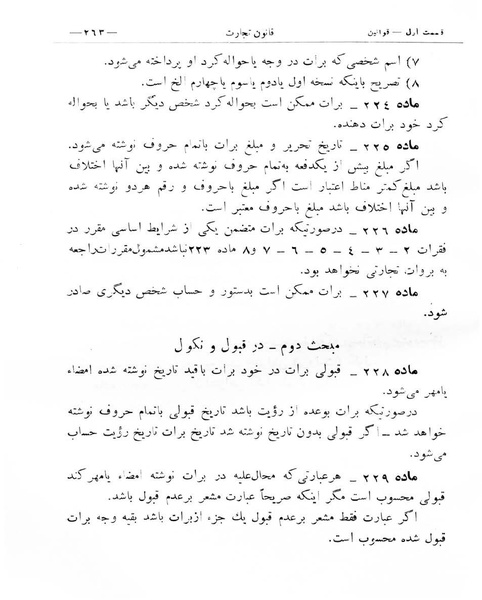 قسمت اول — قوانین
قانون تجارت
—۲۶۳—
۷) اسم شخصی که برات در وجه یاحواله کرد او پرداخته می‌شود.
۸) تصریح باینکه نسخه اول یادوم یاسوم یاچهارم الخ است.
ماده ۲۲۴ ـ برات ممکن است بحواله کرد شخص دیگر باشد یا بحواله
کرد خود برات دهنده.
ماده ۲۲۵ ـ تاریخ تحریر و مبلغ برات باتمام حروف نوشته می‌شود.
اگر مبلغ بیش از یکدفعه به‌تمام حروف نوشته شده و بین آنها اختلاف
باشد مبلغ کمتر مناط اعتبار است اگر مبلغ باحروف و رقم هردو نوشته شده
و بین آنها اختلاف باشد مبلغ باحروف معتبر است.
ماده ۲۲۶ ـ درصورتیکه برات متضمن یکی از شرایط اساسی مقرر در
فقرات ۲ ـ ۳ ـ ۴ ـ ۵ ـ ۶ ـ ۷ و ۸ ماده ۲۲۳ نباشد مشمول مقررات راجعه
به بروات تجارتی نخواهد بود.
ماده ۲۲۷ ـ برات ممکن است بدستور و حساب شخص دیگری صادر
شود.
مبحث دوم ـ در قبول و نکول
ماده ۲۲۸ ـ قبولی برات در خود برات باقید تاریخ نوشته شده امضاء
یامهر می‌شود.
درصورتیکه برات بوعده از رؤیت باشد تاریخ قبولی باتمام حروف نوشته
خواهد شد ـ اگر قبولی بدون تاریخ نوشته شد تاریخ برات تاریخ رؤیت حساب
می‌شود.
ماده ۲۲۹ ـ هرعبارتی که محال‌علیه در برات نوشته امضاء یامهر کند
قبولی محسوب است مگر اینکه صریحاً عبارت مشعر برعدم قبول باشد.
اگر عبارت فقط مشعر برعدم قبول یك جزء ازبرات باشد بقیه وجه برات
قبول شده محسوب است.